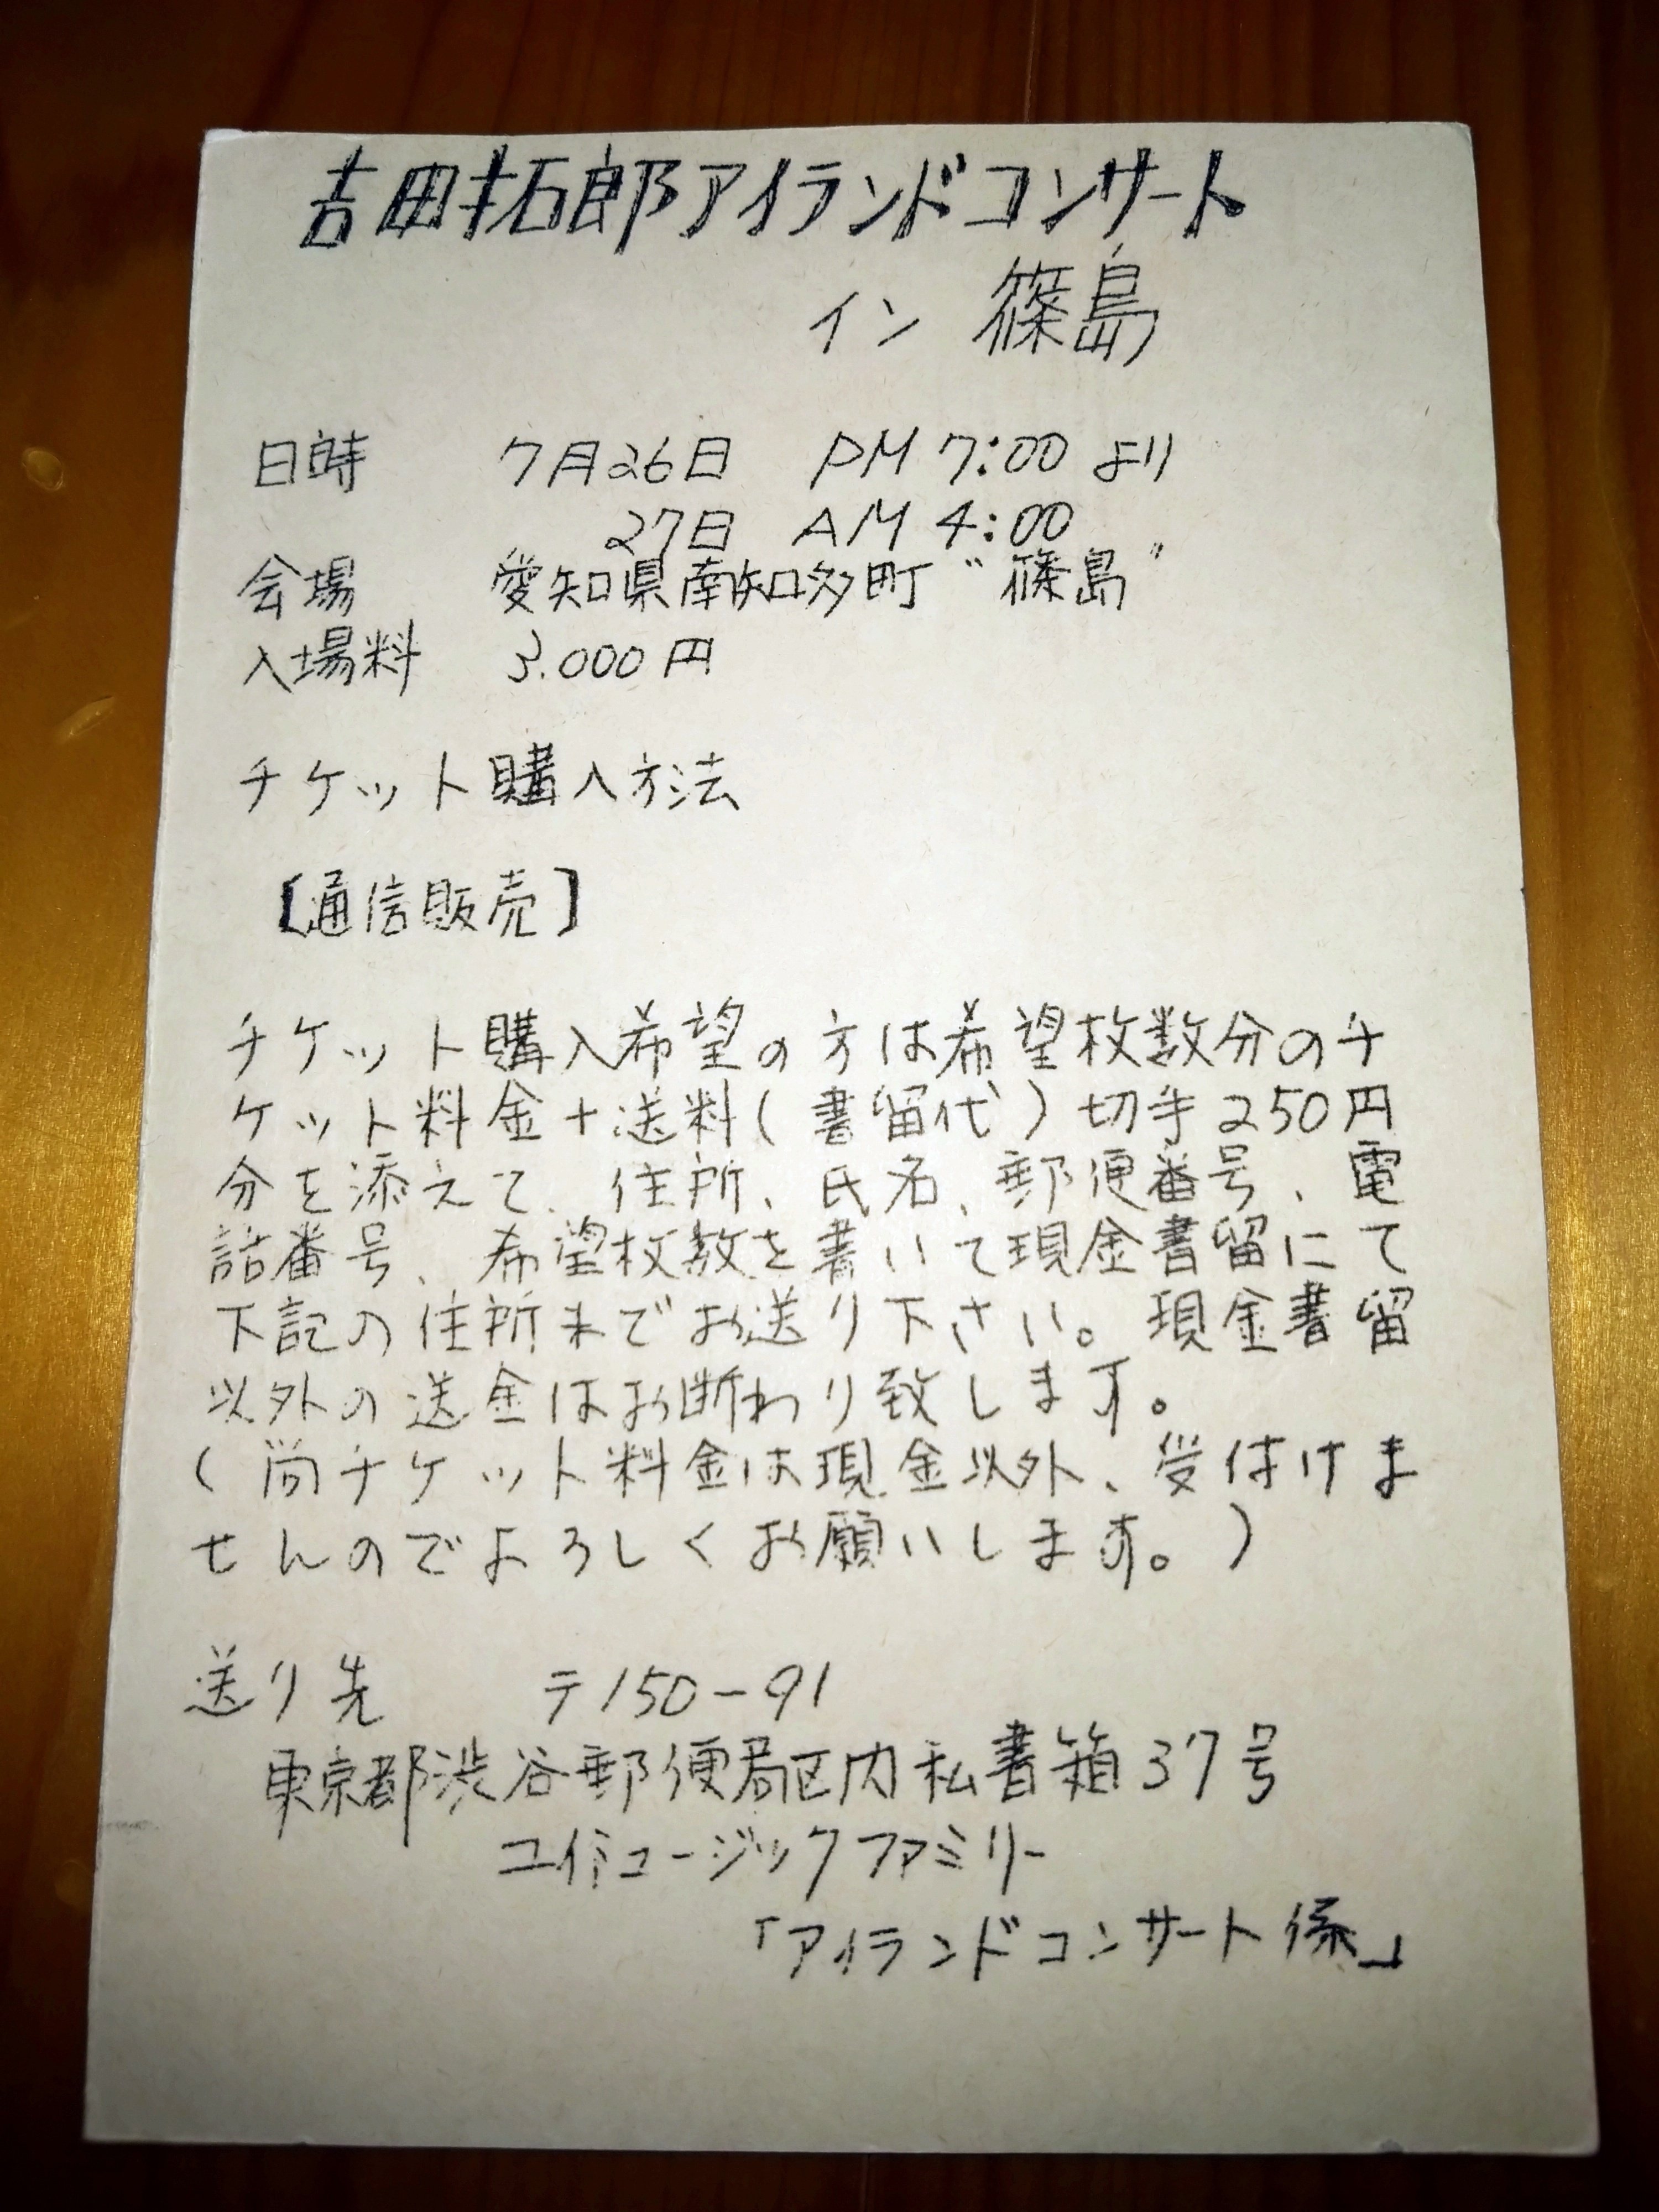 吉田拓郎アイランドコンサート
イン 篠島
日時 7月26日 PM 7:00 より
27日 AM 4:00
会場 愛知県南知多町 "篠島"
入場料 3.000円
チケット購入方法
【通信販売】
チケット購入希望の方は希望枚数分のチ
ケット料金+送料(書留代)切手250円
分を添えて、住所、氏名、郵便番号、電
話番号、希望枚数を書いて現金書留にて
下記の住所までお送り下さい。現金書留
以外の送金はお断わり致します。
(尚チケット料金は現金以外、受付けま
せんのでよろしくお願いします。)
送り先 〒150-91
東京都渋谷郵便局区内私書箱37号
ユイミュージックファミリー
「アイランドコンサート係」